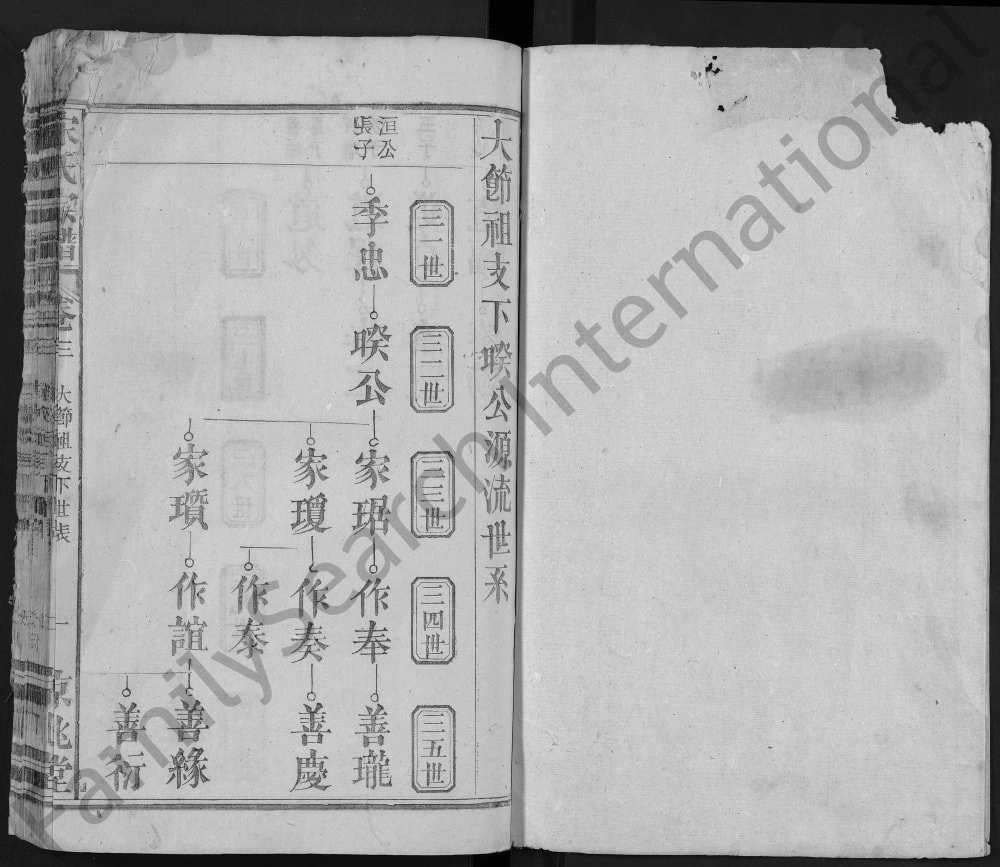 大節祖支下暌公源流世系
三一世
三二世
三三世
三四世
三五世
洹公
張子
季忠
暌公
家琚
作奉
善瓏
家瓊
作奏
善慶
作泰
家瓚
作誼
善緣
善衍
宋氏家譜
卷三
大節祖支下世表
一
京兆堂
FamilySearch International